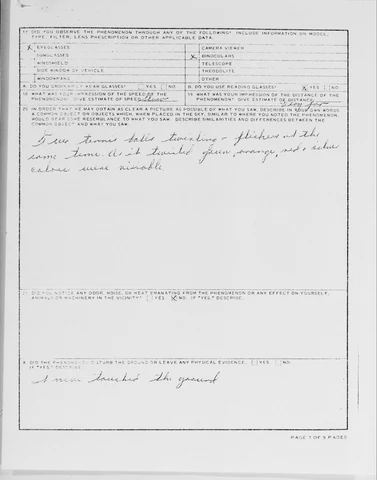 17. DID YOU OBSERVE THE PHENOMENON THROUGH ANY OF THE FOLLOWING? INCLUDE INFORMATION ON MODEL, TYPE, FILTER, LENS PRESCRIPTION OR OTHER APPLICABLE DATA.
X EYEGLASSES
CAMERA VIEWER
SUNGLASSES
X BINOCULARS
WINDSHIELD
TELESCOPE
SIDE WINDOW OF VEHICLE
THEODOLITE
WINDOWPANE
OTHER
A. DO YOU ORDINARILY WEAR GLASSES? YES NO
B. DO YOU USE READING GLASSES? X YES NO
18. WHAT WAS YOUR IMPRESSION OF THE SPEED OF THE PHENOMENON? GIVE ESTIMATE OF SPEED
19. WHAT WAS YOUR IMPRESSION OF THE DISTANCE OF THE PHENOMENON? GIVE ESTIMATE OF DISTANCE.
20. IN ORDER THAT WE MAY OBTAIN AS CLEAR A PICTURE AS POSSIBLE OF WHAT YOU SAW, DESCRIBE IN YOUR OWN WORDS A COMMON OBJECT OR OBJECTS WHICH, WHEN PLACED IN THE SKY, SIMILAR TO WHERE YOU NOTED THE PHENOMENON, WOULD BEAR SOME RESEMBLANCE TO WHAT YOU SAW. DESCRIBE SIMILARITIES AND DIFFERENCES BETWEEN THE COMMON OBJECT AND WHAT YOU SAW.
tennis twisting + at the
same time. As it twisted green, orange, red + silver
colors were visible
21. DID YOU NOTICE ANY ODOR, NOISE, OR HEAT EMANATING FROM THE PHENOMENON OR ANY EFFECT ON YOURSELF, ANIMALS OR MACHINERY IN THE VICINITY? YES X NO. IF "YES" DESCRIBE.
DID THE PHENOMENON DISTURB THE GROUND OR LEAVE ANY PHYSICAL EVIDENCE. YES NO
IF "YES" DESCRIBE
touched the ground
PAGE 7 OF 9 PAGES